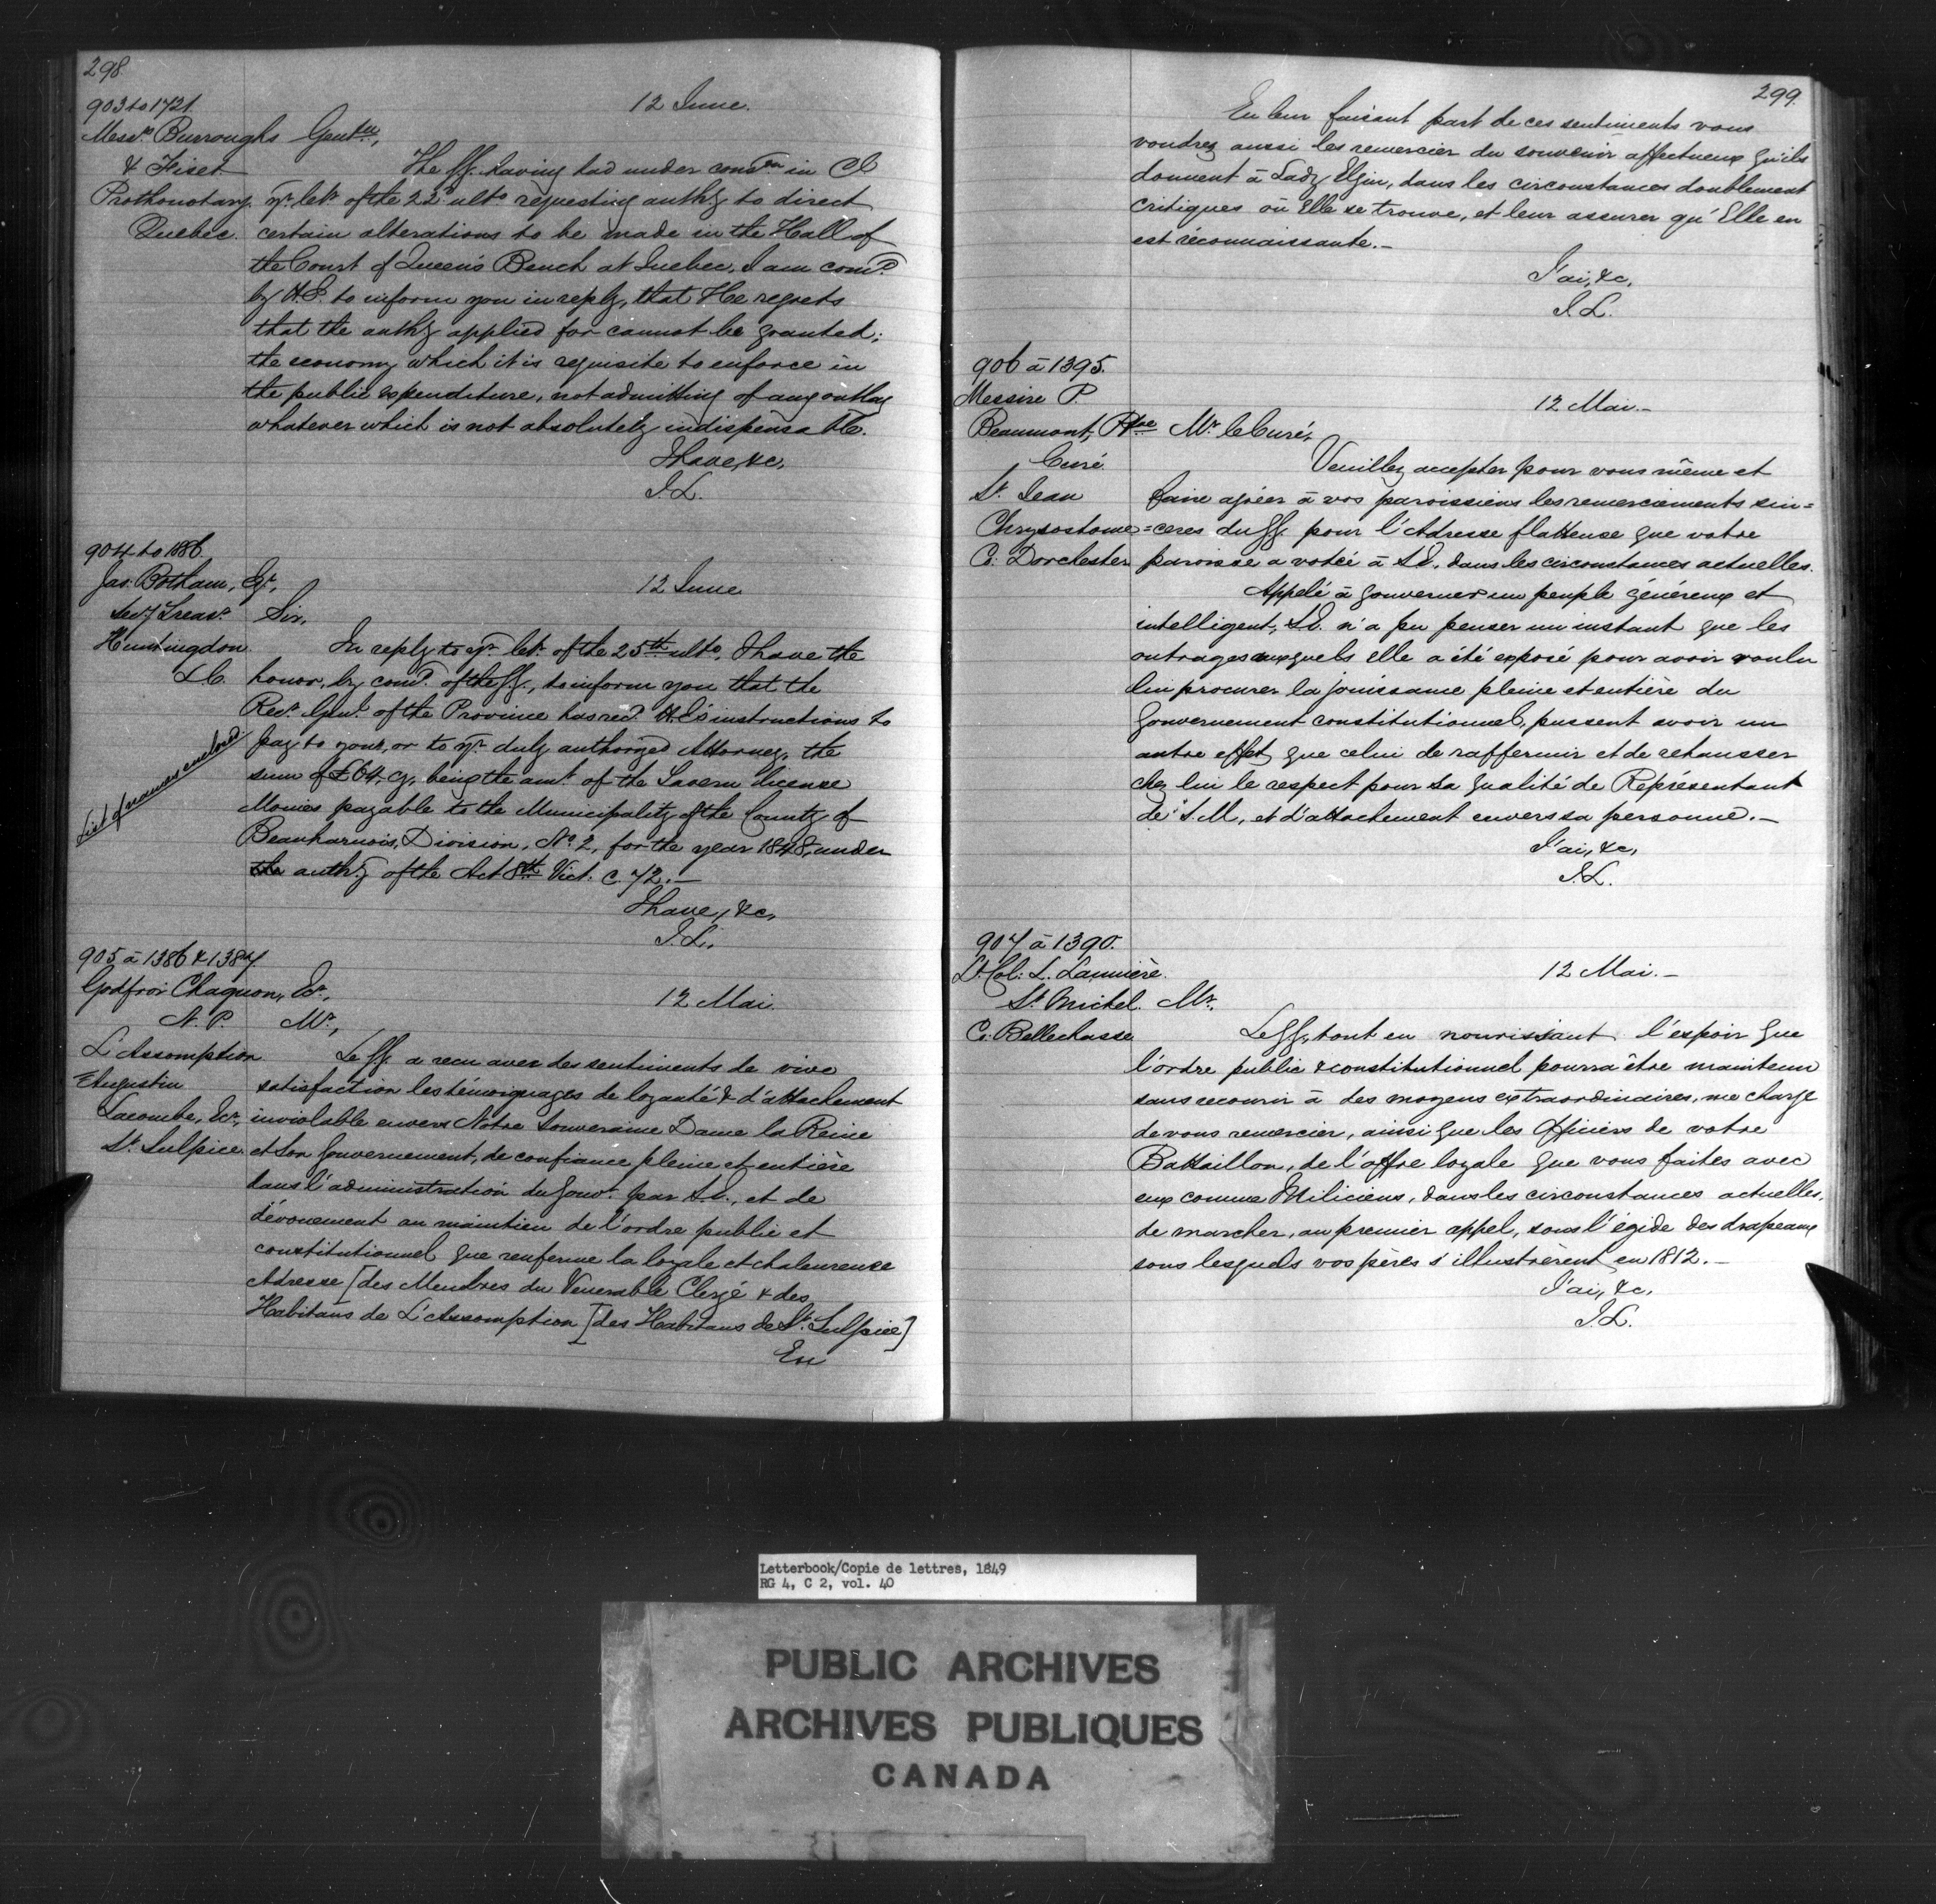 298.
903 to 1721.
12 June.
Messrs. Burroughs Gentn.,
& Fiset
The GG. having had under considn. in Cl
Prothonotary. yr. letr. of the 22d. ulto. requesting authy. to direct
Quebec. certain alterations to be made in the Hall of
the Court of Queen's Bench at Quebec, I am comd.
by H.E. to inform you in reply, that He regrets
that the authy. applied for cannot be granted;
the economy which it is requisite to enforce in
the public expenditure, not admitting of any outlay
whatever which is not absolutely indispensable.
I have, &c,
J.L.
904 to 1886.
Jas. Botham, Er.,
12 June
Secy. Treasr. Sir,
Huntingdon. In reply to yr. letr. of the 25th ulto. I have the
L.C. honor, by comd. of the GG., to inform you that the
Recr. Genl. of the Province has recd. H.E's instructions to
pay to you, or to yr. duly authorized Attorney, the
sum of £64. Cy, being the amt. of the Tavern license
Monies payable to the Municipality of the County of
Beauharnois, Division, No. 2, for the year 1848, under
the authy. of the Act 8th Vict. c. 72.—
List of names enclosed
I have, &c,
J.L.
905 à 1386 & 1387.
Godfroi Chagnon, Ecr.,
12 Mai.
N.P. Mr.,
L'Assomption Le GG. a recu avec des sentiments de vive
Augustin satisfaction les témoignages de loyauté & d'attachement
Lacombe, Ecr., inviolable envers Notre Souveraine Dame la Reine
St. Sulpice. et Son Gouvernement, de confiance pleine et entière
dans l'administration du Gouvt. par S.E., et de
dévouement au maintien de l'ordre public et
constitutionnel que renferme la loyale et chaleureuse
Adresse [des Membres du Vénérable Clergé & des
Habitans de L'Assomption [des Habitans de St. Sulpice]
En
299.
En leur faisant part de ces sentiments vous
voudrez aussi les remercier du souvenir affectueux qu'ils
donnent à Lady Elgin, dans les circonstances doublement
critiques où Elle se trouve, et leur assurer qu'Elle en
est reconnaissante.—
J'ai, &c,
J.L.
906 à 1395.
Messire P.
12 Mai.—
Beaumont, Ptre Mr. le Curé,
Curé
Veuillez accepter pour vous même et
St. Jean faire agréer à vos paroissiens les remerciements sin=
Chrysostome =cères du GG. pour l'Adresse flatteuse que votre
Co: Dorchester paroisse a votée à S.E. dans les circonstances actuelles.
Appelé à gouverner un peuple généreux et
intelligent, S.E. n'a pu penser un instant que les
outrages auxquels elle a été exposé pour avoir voulu
lui procurer la jouissance pleine et entière du
Gouvernement constitutionnel, pussent avoir un
autre effet que celui de raffermir et de rehausser
chez lui le respect pour sa qualité de Représentant
de S.M, et d'attachement envers sa personne.—
J'ai, &c,
J.L.
907 à 1390.
Lt. Col: L. Lanmière.
12 Mai.—
St. Michel. Mr.,
Co: Bellechasse
Le GG, tout en nourissant l'espoir que
l'ordre public & constitutionnel pourra être maintenu
sans recourir à des moyens extraordinaires, me charge
de vous remercier, ainsi que les Officiers de votre
Battaillon, de l'offre loyale que vous faites avec
eux comme Miliciens, dans les circonstances actuelles,
de marcher, au premier appel, sous l'égide des drapeaux
sous lesquels vos pères s'illustrèrent en 1812.—
J'ai, &c.
J.L.
Letterbook/Copie de lettres, 1849
RG 4, C 2, vol. 40
PUBLIC ARCHIVES
ARCHIVES PUBLIQUES
CANADA